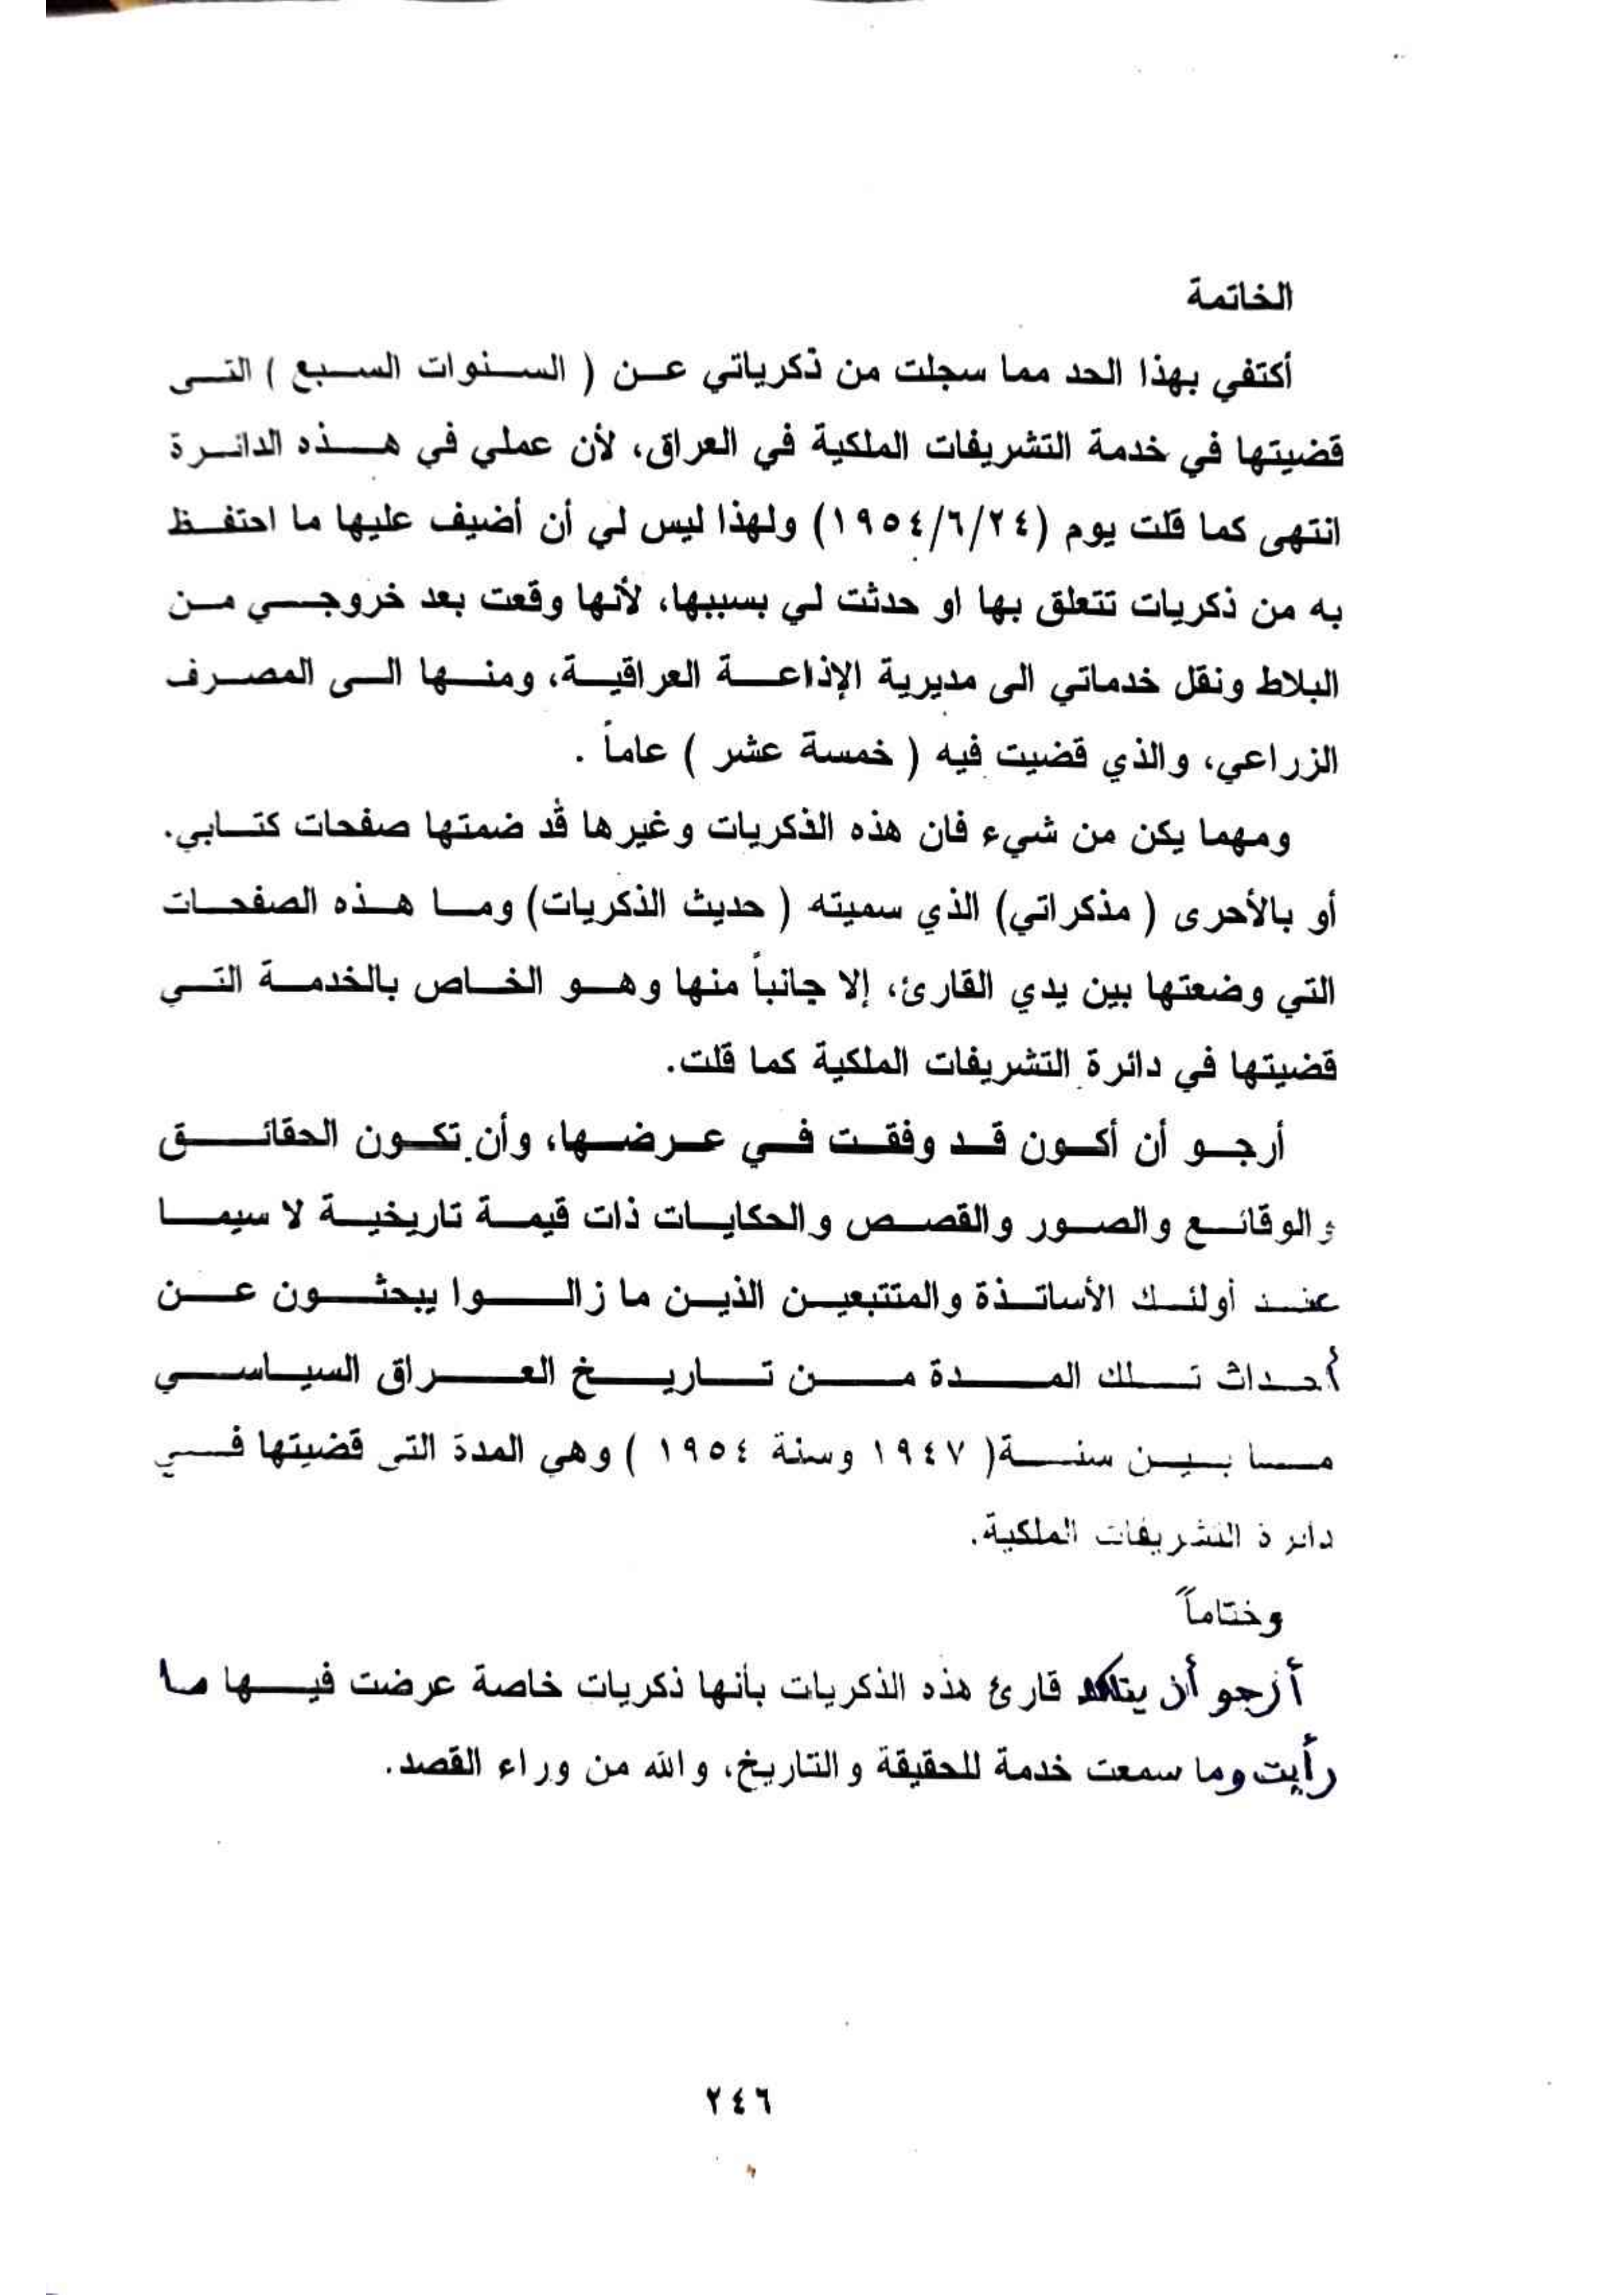 الخاتمة
أكتفي بهذا الحد مما سجلت من ذكرياتي عن ( السنوات السبع ) التي
قضيتها في خدمة التشريفات الملكية في العراق، لأن عملي في هذه الدائرة
انتهى كما قلت يوم (١٩٥٤/٦/٢٤) ولهذا ليس لي أن أضيف عليها ما احتفظ
به من ذكريات تتعلق بها او حدثت لي بسببها، لأنها وقعت بعد خروجي من
البلاط ونقل خدماتي الى مديرية الإذاعة العراقية، ومنها الى المصرف
الزراعي، والذي قضيت فيه ( خمسة عشر ) عاماً .
ومهما يكن من شيء فان هذه الذكريات وغيرها قد ضمتها صفحات كتابي.
أو بالأحرى ( مذكراتي) الذي سميته ( حديث الذكريات) وما هذه الصفحات
التي وضعتها بين يدي القارئ، إلا جانباً منها وهو الخاص بالخدمة التي
قضيتها في دائرة التشريفات الملكية كما قلت.
أرجو أن أكون قد وفقت في عرضها، وأن تكون الحقائق
والوقائع والصور والقصص والحكايات ذات قيمة تاريخية لا سيما
عند أولئك الأساتذة والمتتبعين الذين ما زالوا يبحثون عن
أحداث تلك المدة من تاريخ العراق السياسي
ما بين سنة( ١٩٤٧ وسنة ١٩٥٤ ) وهي المدة التي قضيتها في
دائرة التشريفات الملكية.
وختاماً
أرجو أن يتأكد قارئ هذه الذكريات بأنها ذكريات خاصة عرضت فيها ما
رأيت وما سمعت خدمة للحقيقة والتاريخ، والله من وراء القصد.
٢٤٦